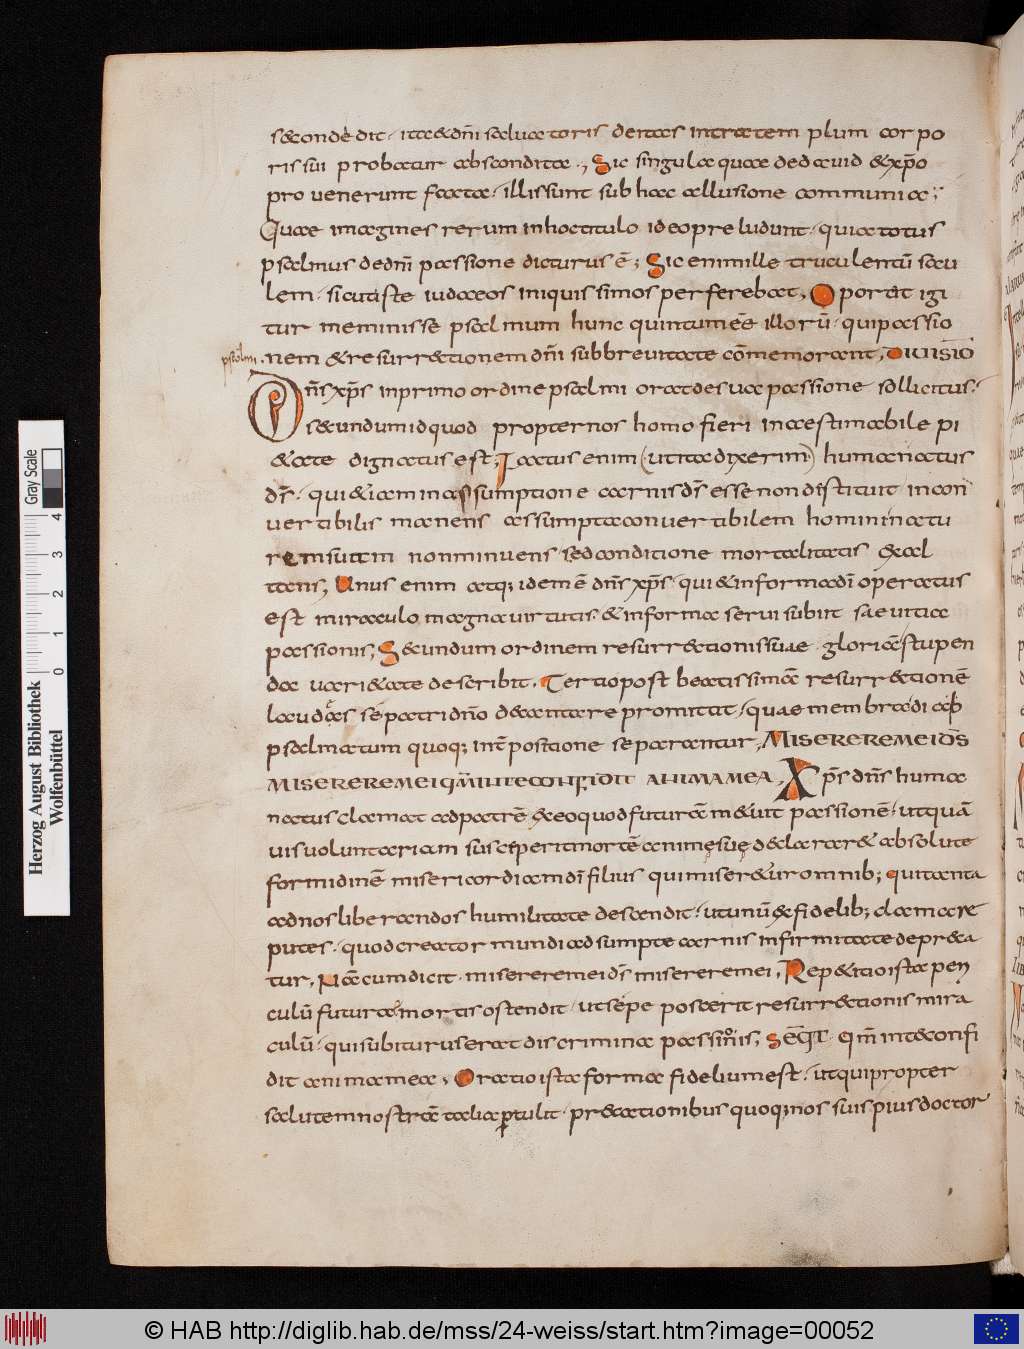 se abscondèdit · ita & dñi saluatoris deitas intra templum corpo
ris sui probatur abscondita ., Sic singula quae de dauid & xpõ
pro uenerunt facta · illis sunt sub hac allusione communia ;
Quae imagines rerum in hoc titulo ideo preludunt · quia totus
psalmus de dñi passione dicturus ē ; Sic enim ille truculentũ sau
lem · sicut iste iudaeos iniquissimos perferebat , Oportet igi
tur meminisse psalmum hunc quintum eē illorũ · qui passio
psalmi . nem & resurrectionem dñi sub breuitate cõmemorant , DIUISIÕ
Dñs xp̄s in primo ordine psalmi orat de sua passione sollicitus .
secundum id quod propter nos homo fieri inaestimabile pi
&ate dignatus est ; Factus enim ( ut ita dixerim ) humanatus
dr̄ · qui &iam in assumptione carnis d̄s esse non destitit · incon
uertibilis manens assumpta conuertibilem hominis natu
rem suam non minuens · sed conditione mortalitatis exal
tans ; Unus enim atq; idem ē dñs xp̄s · qui & in forma dĩ operatus
est miracula magnae uirtutis · & in forma serui subiit saeuitia
passionis ; Secundum ordinem resurrectionis suae · gloriã stupen
da uari&ate describit . Tertio post beatissimã resurrectionē
laudes se patri dño decantare promittit · quae membra diaps
psalmatum quoq; int̄ positione separantur , MISERERE MEI D̄S
MISERERE MEI QM̄ IN TE CONFIDIT ANIMA MEA , Xp̄s dñs huma
natus clamat ad patrē & eo quod futurã m&uit passionē · ut quã
uis uoluntariam susciperit mortē animę suę declarar& absolute
formidinē misericordiam dĩ filius qui miseretur omnib; qui tanta
ad nos liberandos humilitate descendit · ut unũ & fidelib; clamare
putes · quod creator mundi adsumpte carnis infirmitate depreca
tur , Nã cum dicit · miserere mei d̄s miserere mei , Repetitio ista peri
culũ futurae mortis ostendit · ut sepe poscerit resurrectionis mira
culũ · qui subiturus erat discrimina passionis ; SEQT · Qm̄ in te confi
dit anima mea , Oratio ista forma fidelium est · ut qui propter
salutem nostrã talia ptulit · precationibus quoq; nos suis pius doctor
Herzog August Bibliothek
Wolfenbüttel
0 1 2 3 4
Gray Scale
© HAB http://diglib.hab.de/mss/24-weiss/start.htm?image=00052